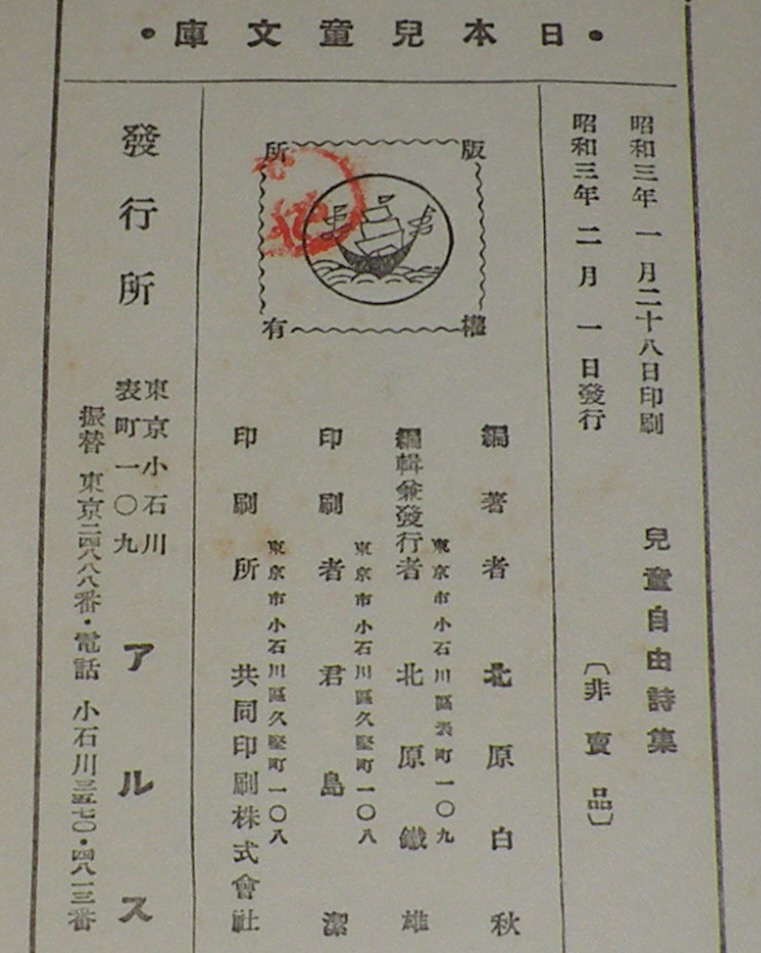 ・庫文童兒本日・
昭和三年一月二十八日印刷
昭和三年二月一日發行
兒童自由詩集
〔非賣品〕
版權所有
編著者 北原白秋
東京市小石川區表町一〇九
編輯兼發行者 北原鐵雄
東京市小石川區久堅町一〇八
印刷者 君島潔
東京市小石川區久堅町一〇八
印刷所 共同印刷株式會社
發行所
東京小石川
表町一〇九
アルス
振替 東京二四八八八番・電話 小石川三五七〇・四八一三番